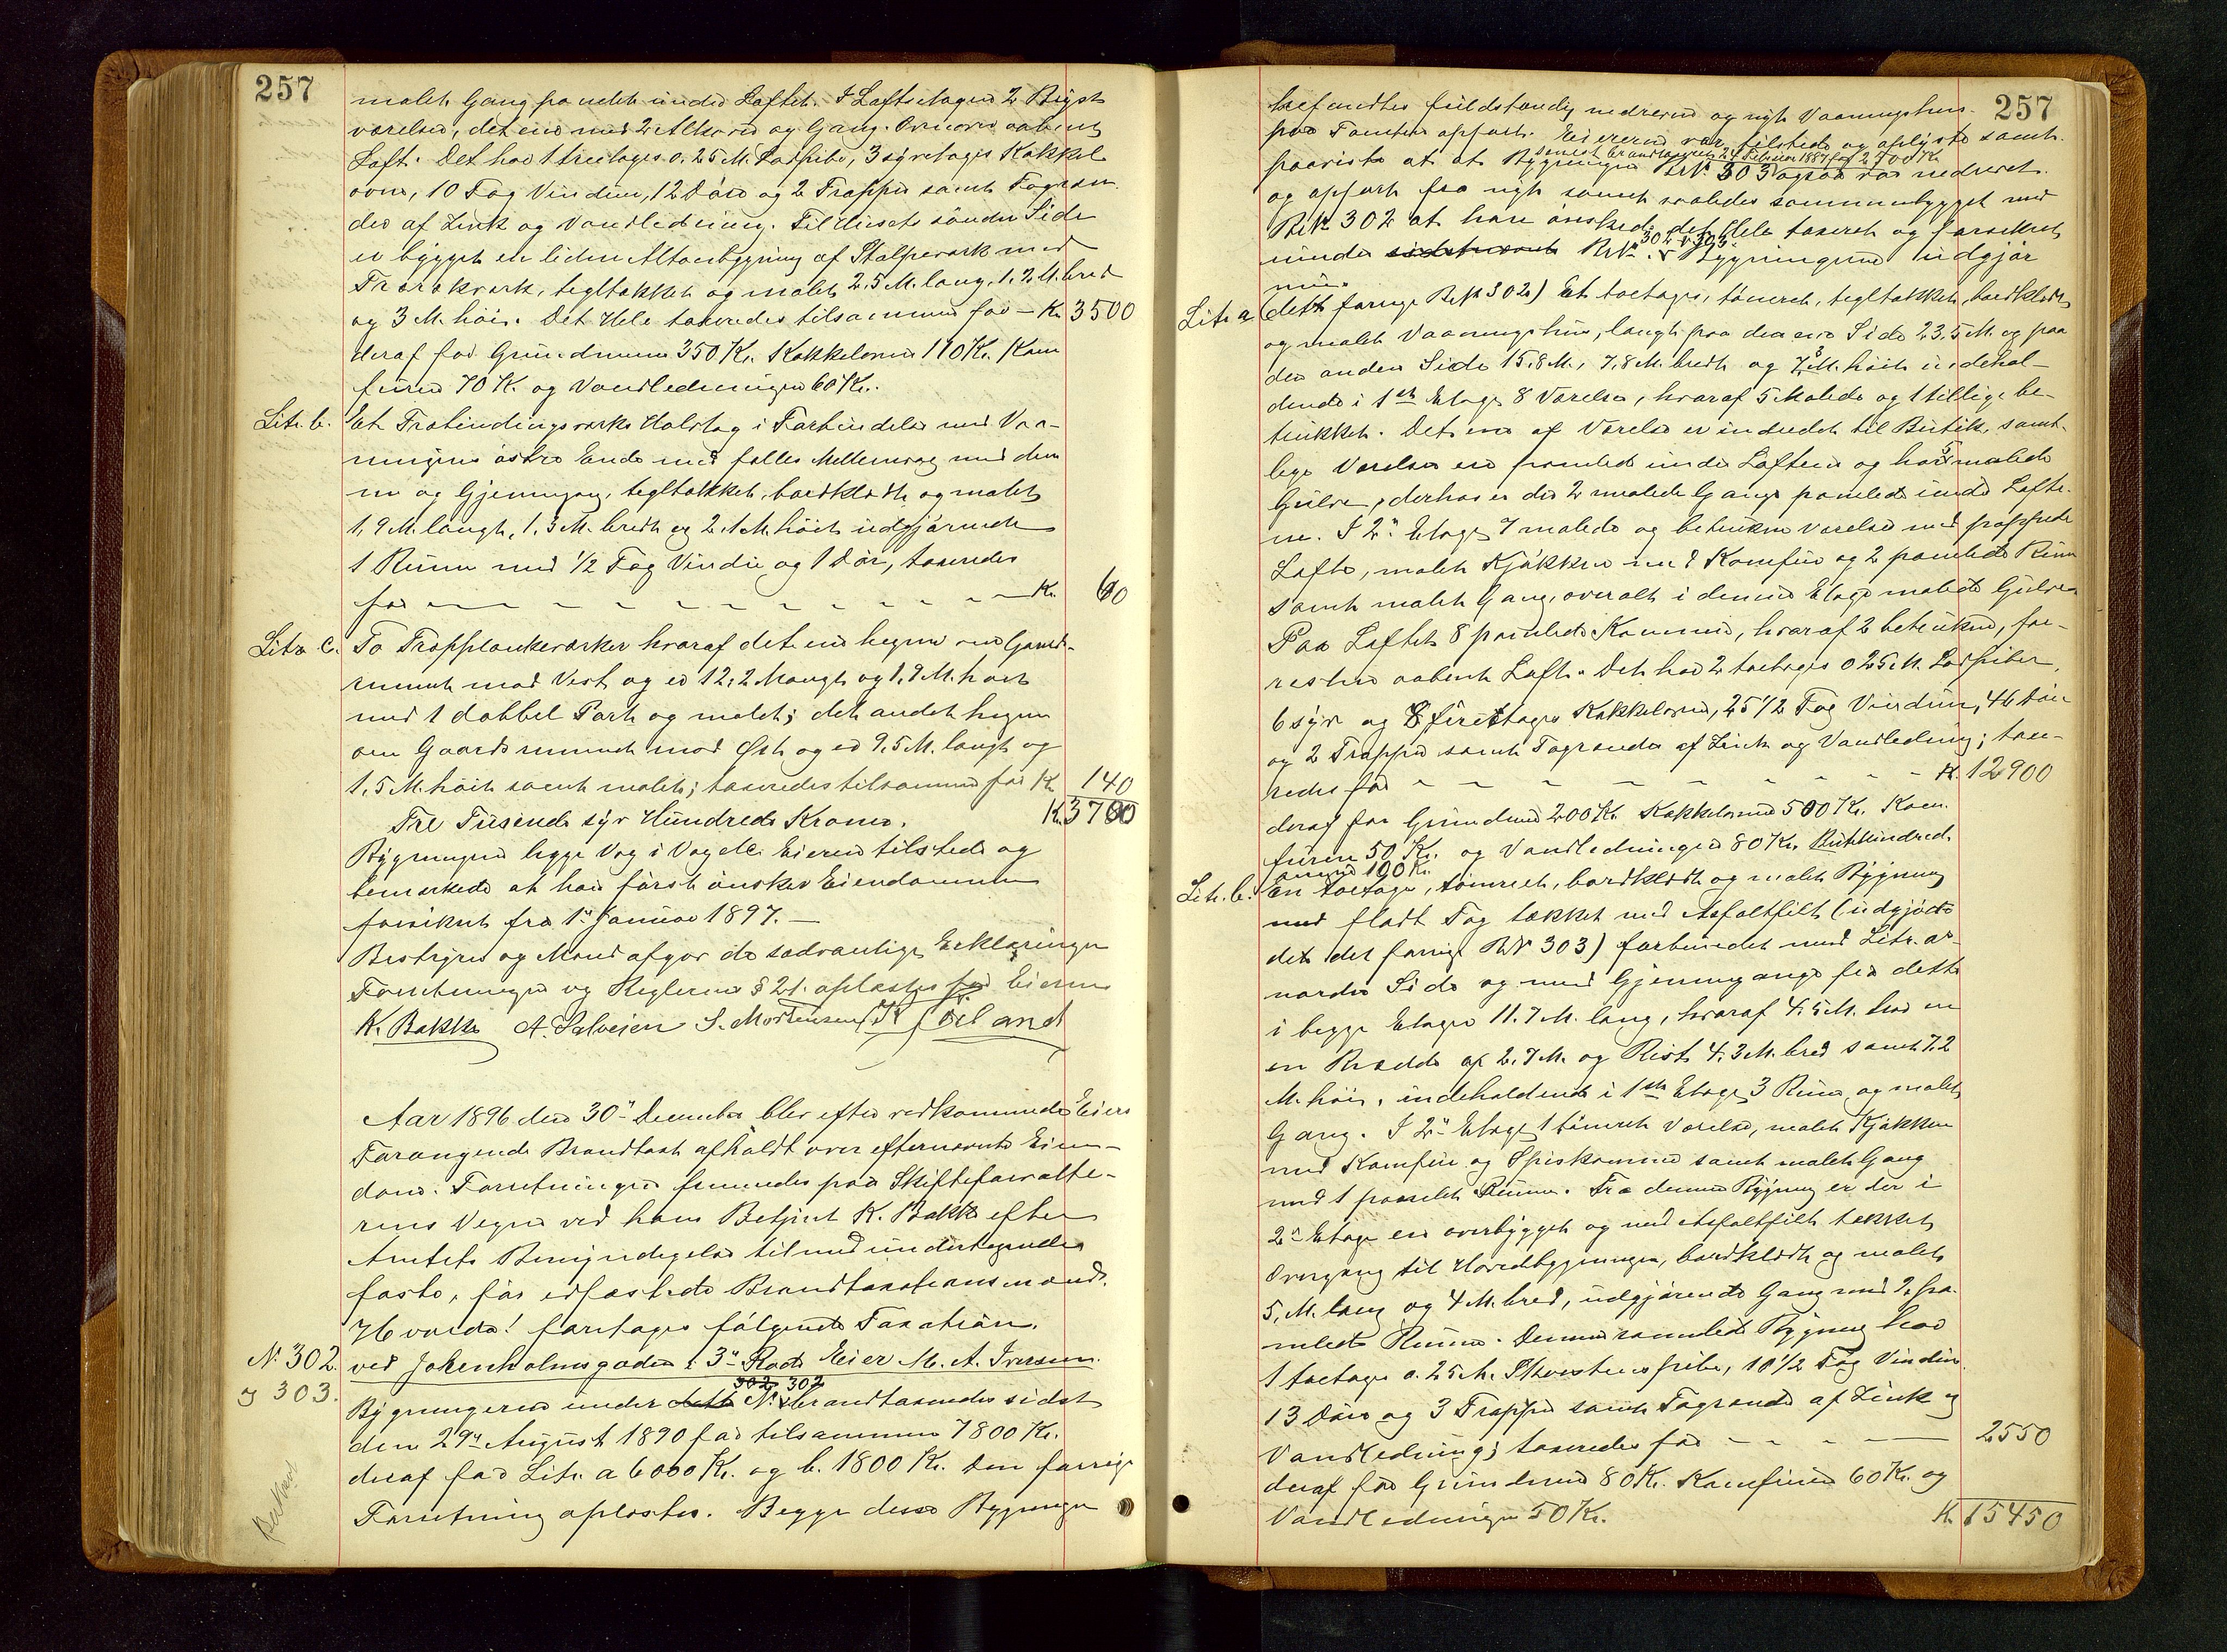 257
malet Gang panelet under Loftet. I Loftsetagen 2 Bryst
værelser, det ene med 2 Alkover og Gang. Ovenover aabent
Loft. Det har 1 treetages 0.25 M. Rørpibe, 3 syvetages Kakkel
ovne, 10 Fag Vinduer, 12 Døre og 2 Trapper samt Tagren
der af Zink og Vandledning. Til Husets søndre Side
er bygget en liden Altanbygning af Stolpeverk med
Trærækverk, tegltækket og malet 2.5 M. lang, 1.2 M. bred
og 3 M. høi. Det Hele taxeredes tilsammen for — Kr. 3500
deraf for Grundmuren 350 Kr. Kakkelovne 110 Kr. Kom
furen 70 Kr. og Vandledningen 60 Kr.
Litr. b. Et Træbindingsverks Halvtag i Forbindelse med Vaa-
ningens østre Ende med fælles Mellemvæg med den
ne og Gjennemgang, tegltækket, bordklædt og malet
1.9 M. langt, 1.3 M. bredt og 2.1 M. høit udgjørende
1 Rum med 1/2 Fag Vindu og 1 Dør, taxeredes
for — Kr. 60
Litra c. To Trapplankeværker hvoraf det ene hegner om Gaards-
rummet mod Vest og er 12.2 M. langt og 1.9 M. høit
med 1 dobbel Port og malet; det andet hegner
om Gaardsrummet mod Øst og er 9.5 M. langt og
1.5 M. høit samt malet; taxeredes tilsammen for Kr. 140
Tre Tusende syv Hundrede Kroner. Kr. 3700
Bygningen ligger Væg i Væg &c. Eieren tilstede og
bemærkede at han først ønsker Eiendommen
forsikret fra 1ste Januar 1897. —
Bestyrer og Mænd afgav de sædvanlige Erklæringer
Forretningen og Reglernes § 21. oplæstes for Eieren
K. Bakke A. Salvesen S. Mortensen
Aar 1896 den 30te December blev efter vedkommende Eiers
Forlangende Brandtaxt afholdt over efternævnte Eien-
dom. Forretningen fremmedes paa Skifteforvalte-
rens Vegne ved hans Betjent K. Bakke efter
Amtets Bemyndigelse tilmed undertegnede
faste, før edfæstede Brandtaxationsmænd.
Hvorda! foretages følgende Taxation.
No. 302. ved Jokenholmsgaden i 3die Rode Eier M. A. Iversen.
og 303.
302 302
Bygningerne under dette No. brandtaxeredes sidst
den 29de August 1890 for tilsammen 7800 Kr.
deraf for Litr. a 6000 Kr. og b. 1800 Kr. Den forrige
Forretning oplæstes. Begge disse Bygninger
257
befandtes fuldstændig nedrevne og nyt Vaaningshus
paa Tomten opført. Eieren var tilstede og oplyste samt
paaviste at Bygningen BrNo 303 ogsaa var nedrevet
senest brandtaxeret 4 Februar 1887 for 2700 Kr.
og opført fra nyt samt saaledes sammenbygget med
BrNo 302 at han ønskede det Hele taxeret og forsikret
under sidstnævnte BrNo. 302 & 303. Bygningerne udgjør
nu.
Litr. a (dette forrige BrNo 302) Et toetages, tømret, tegltækket, bordklædt
og malet Vaaningshus, langt paa den ene Side 23.5 M. og paa
den anden Side 15.8 M., 7.8 M. bredt og 7.3 M. høit indehol-
dende i 1ste Etage 8 Værelser, hvoraf 5 malede og 1 tillige be-
trukket. Det ene af Værelser er indredet til Butik, samt-
lige Værelser ere panelede under Loftene og har 3 malede
Gulve, derhos er der 2 malede Gange panelede under Lofte-
ne. I 2den Etage 7 malede og betrukne Værelser med pappede
Lofte, malet Kjøkken med Komfur og 2 panelede Rum
samt malet Gang, overalt i denne Etage malede Gulve
Paa Loftet 8 panelede Kammere, hvoraf 2 betrukne, for-
resten aabent Loft. Det har 2 toetages 0.25 M. Rørpiber,
6 syv og 8 firetages Kakkelovne, 25 1/2 Fag Vinduer, 46 Døre
og 2 Trapper samt Tagrender af Zink og Vandledning; taxe-
redes for — Kr. 12900
deraf for Grundmur 200 Kr. Kakkelovne 500 Kr. Kom-
furen 50 Kr. og Vandledningen 80 Kr. Butikindred-
ningen 100 Kr.
Litr. b. En toetages, tømret, bordklædt og malet Bygning
med fladt Tag tækket med Asfaltfilt (udgjorde
det det forrige BrNo 303) forbundet med Litr. as
nordre Side og med Gjennemgange fra dette
i begge Etager 11.7 M. lang, hvoraf 4.5 M. har en
en Bredde af 2.7 M. og Rest 4.3 M. bred samt 7.2
M. høi, indeholdende i 1ste Etage 3 Rum og malet
Gang. I 2den Etage 1 tømret Værelse, malet Kjøkken
med Komfur og Spiskammer samt malet Gang
med 1 panelet Rum. Fra denne Bygning er der i
2den Etage en overbygget og med Asfaltfilt tækket
Overgang til Hovedbygningen, bordklædt og malet
5 M. lang og 4 M. bred, udgjørende Gang med 2 pa-
nelede Rum. Denne samlede Bygning har
1 toetages 0.25 M. Skorstenspibe, 10 1/2 Fag Vinduer
13 Døre og 3 Trapper samt Tagrender af Zink og
Vandledning; taxeredes for — 2550
deraf for Grundmur 80 Kr. Komfuren 60 Kr. og
Vandledningen 50 Kr. Kr. 15450